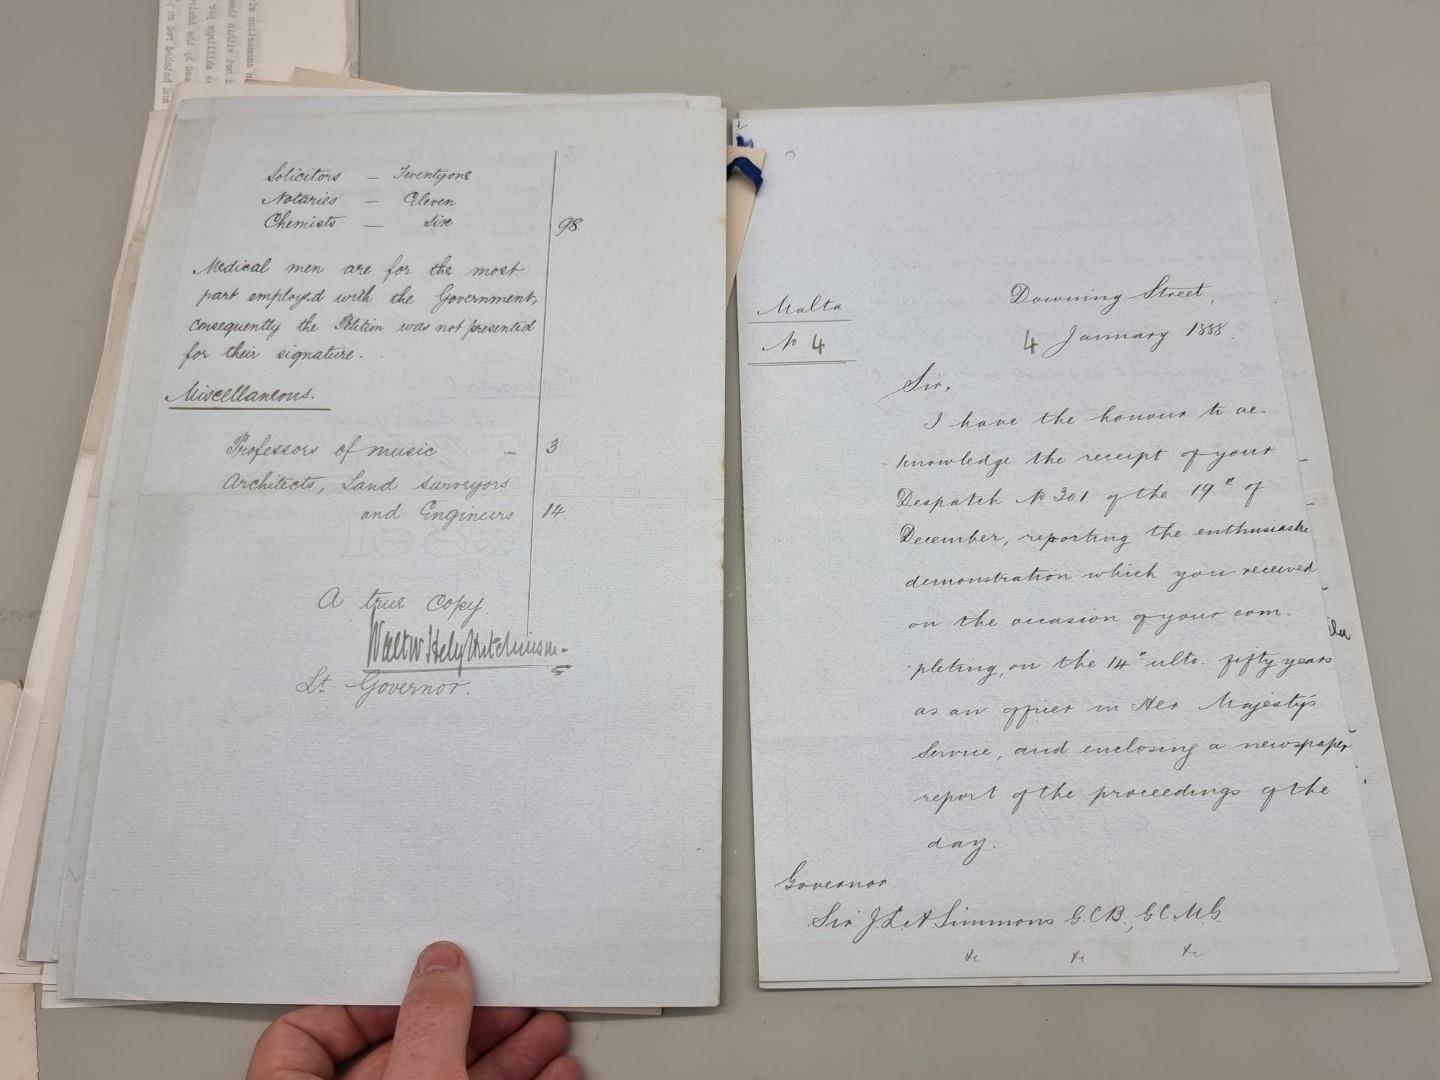 Solicitors — Twentyone
Notaries — Eleven
Chemists — Six 98.
Medical men are for the most
part employed with the Government,
consequently the Petition was not presented
for their signature.
Miscellaneous.
Professors of music – 3
Architects, Land surveyors
and Engineers 14.
A true Copy
Walter Hely Hutchinson
Lt Governor.
Malta
No 4
Downing Street,
4 January 1888.
Sir,
I have the honour to ac-
knowledge the receipt of your
Despatch No 301 of the 19th of
December, reporting the enthusiastic
demonstration which you received
on the occasion of your com-
pleting, on the 14th ulto. fifty years
as an officer in Her Majesty's
Service, and enclosing a newspaper
report of the proceedings of the
day.
Governor
Sir J. L. A Simmons G.C.B., G.C.M.G.
&c &c &c